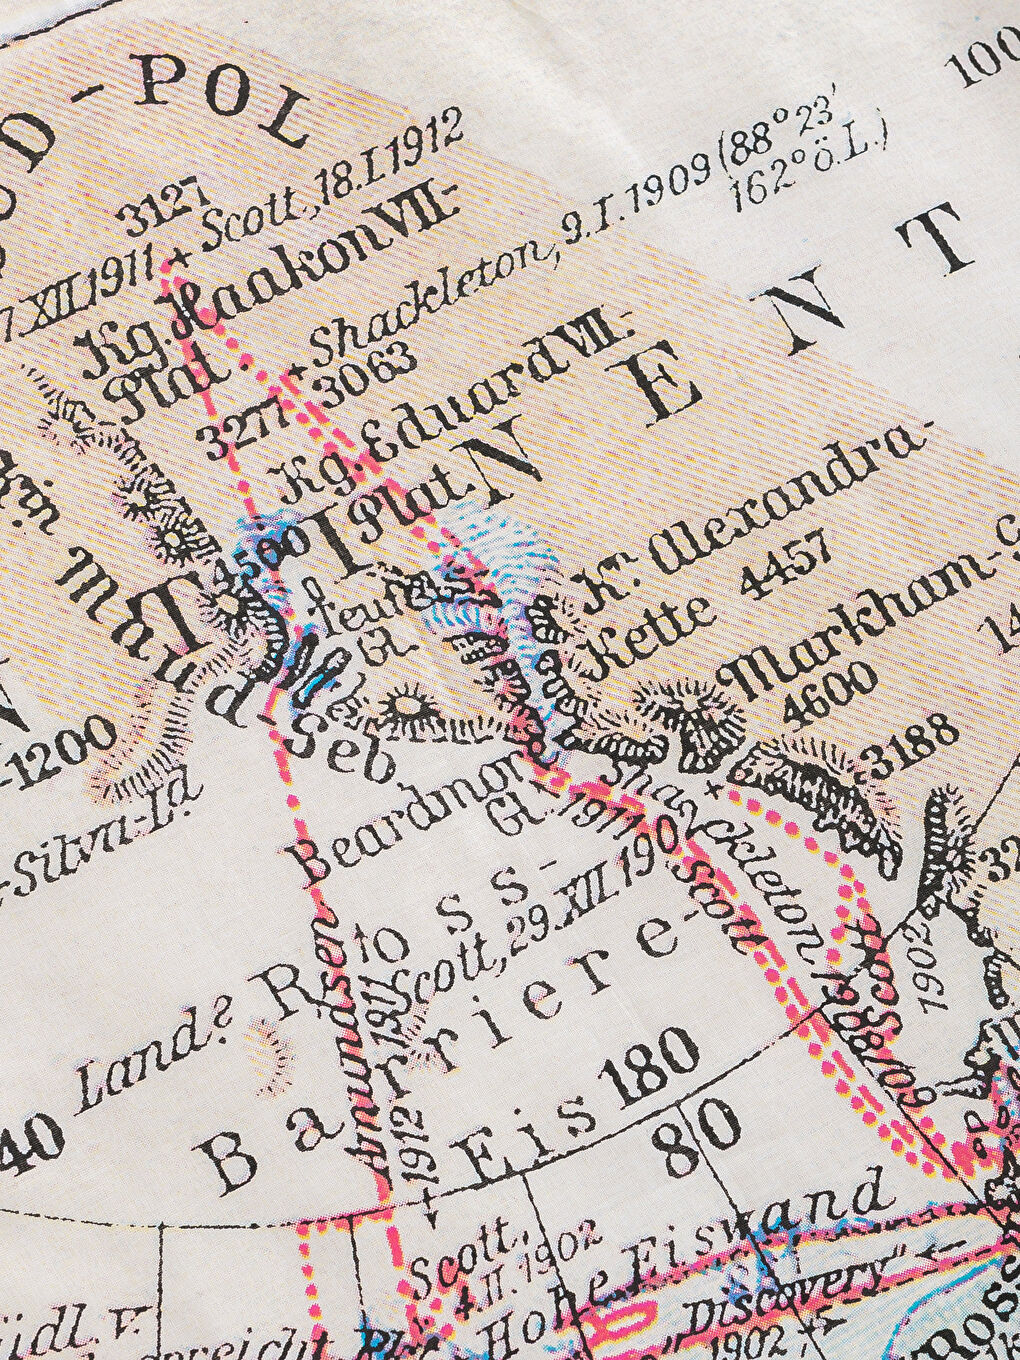 D-POL
100
3127
Scott, 18.I.1912
XII.1911
Kg. Haakon VII.-
Plat.
Shackleton, 9.I.1909 (88° 23'
162° ö.L.)
3063
3277
Kg. Eduard VII.-
Plat.
T I N E N T
4500
Teufels
Gl.
Kn. Alexandra-
Kette 4457
Markham-
4600
3188
Maud
Geb
-1200
-Silva-Ld
Beardmore
Gl.
1911
Shackleton 1908/09
Scott
Scott, 29.XII.190
1902
Ross-
Barriere-
Eis
Land?
Amundsen
1911
1912
180
80
40
Scott,
4.II.1902
Hohe Eiswand
"Discovery"
1902
üdl. v.